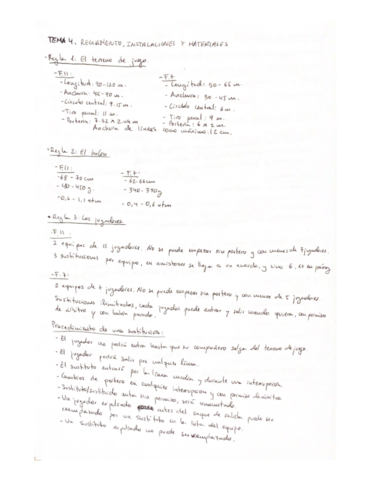 TEMA 4. REGLAMENTO, INSTALACIONES Y MATERIALES
- Regla 1: El terreno de juego.
- F.11: - F.7
- Longitud: 90-120 m. - Longitud: 50-65 m
- Anchura: 45-90 m. - Anchura: 30-45 m.
- Círculo central: 9.15 m. - Círculo central: 6 m.
- Tiro penal: 11 m. - Tiro penal: 9 m.
- Portería: 7.32 x 2.44 m - Portería: 6 x 2 m.
Anchura de líneas como mínimo: 12 cm.
- Regla 2: El balón
- F.11: - F.7:
- 68-70 cm - 62-66 cm
- 410-450 g. - 340-390 g
- 0,6-1,1 atm - 0,4-0,6 atm
- Regla 3: Los jugadores.
- F.11:
2 equipos de 11 jugadores. No se puede empezar sin portero y con menos de 7 jugadores.
3 sustituciones por equipo, en amistosos se llega a un acuerdo, y sino 6,
- F.7:
2 equipos de 7 jugadores. No se puede empezar sin portero y con menos de 5 jugadores.
Sustituciones ilimitadas, cada jugador puede entrar y salir cuando quiera, con permiso
de árbitro y con balón parado.
Procedimiento de una sustitución:
- El jugador no podrá entrar hasta que su compañero salga del terreno de juego
- El jugador podrá salir por cualquier línea.
- El sustituto entrará por la línea media y durante una interrupción.
- Cambios de portero en cualquier interrupción y con permiso del árbitro
- Sustituto/sustituido entra sin permiso, será amonestado
- Un jugador expulsado antes del saque de salida puede ser
reemplazado por un sustituto en la lista del equipo.
- Un sustituto expulsado no puede ser reemplazado.